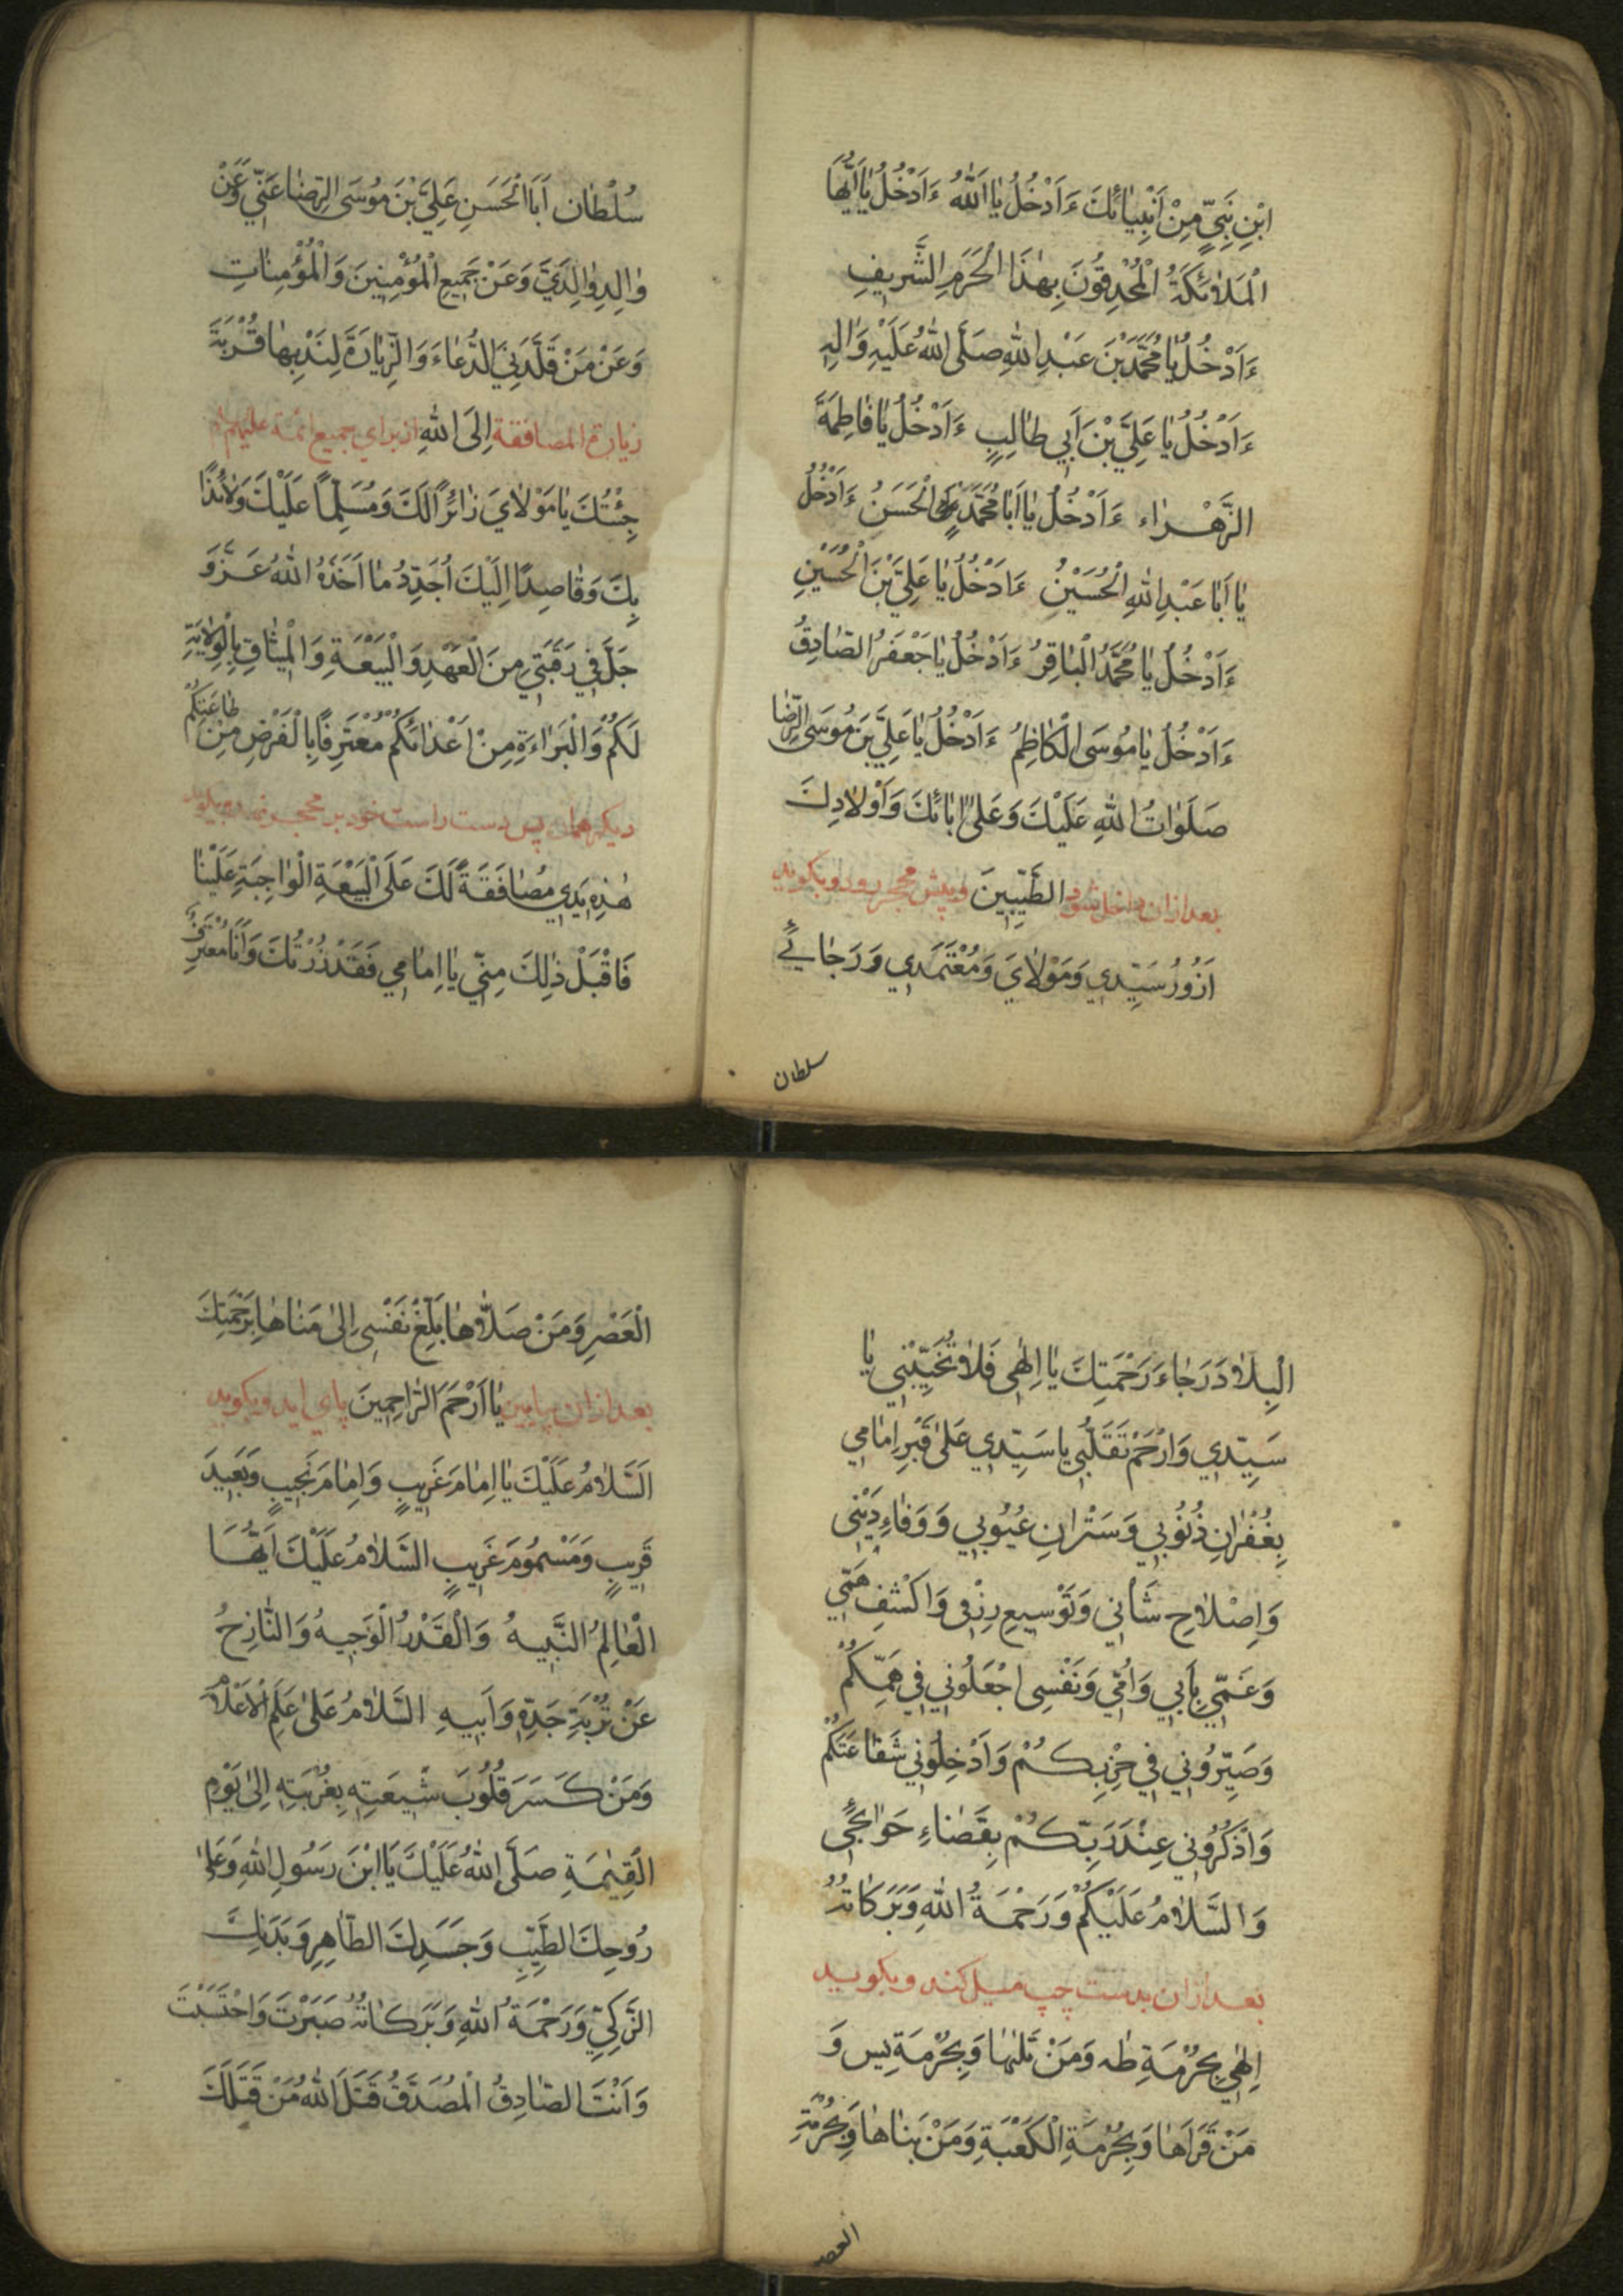 ابْنِ نَبِيٍّ مِنْ اَنْبِيٰائِكَ ءَاَدْخُلُ يٰا اَللّٰهُ ءَاَدْخُلُ يٰا اَيُّهَا
الْمَلاٰئِكَةُ الْمُحْدِقُونَ بِهٰذَا الْحَرَمِ الشَّرِيفِ
ءَاَدْخُلُ يٰا مُحَمَّدَ بْنَ عَبْدِ اللّٰهِ صَلَّى اللّٰهُ عَلَيْهِ وَاٰلِهِ
ءَاَدْخُلُ يٰا عَلِيَّ بْنَ اَبِي طٰالِبٍ ءَاَدْخُلُ يٰا فٰاطِمَةَ
الزَّهْرٰاء ءَاَدْخُلُ يٰا اَبٰا مُحَمَّدٍ الْحَسَنُ ءَاَدْخُلُ
يٰا اَبٰا عَبْدِ اللّٰهِ الْحُسَيْنُ ءَاَدْخُلُ يٰا عَلِيَّ بْنَ الْحُسَيْنِ
ءَاَدْخُلُ يٰا مُحَمَّدُ الْبٰاقِرُ ءَاَدْخُلُ يٰا جَعْفَرُ الصّٰادِقُ
ءَاَدْخُلُ يٰا مُوسَى الْكٰاظِمُ ءَاَدْخُلُ يٰا عَلِيَّ بْنَ مُوسَى الرِّضٰا
صَلَوٰاتُ اللّٰهِ عَلَيْكَ وَعَلىٰ اٰبٰائِكَ وَاَوْلاٰدِكَ
بعد ازان داخل شود الطَّيِّبِينَ و پيش محجر رود و بگويد
اَزُورُ سَيِّدِي وَمَوْلاٰيَ وَمُعْتَمَدِي وَرَجٰائِي
سلطان
سُلْطٰان اَبَا الْحَسَنِ عَلِيَّ بْنَ مُوسَى الرِّضٰا عَنِّي وَعَنْ
وٰالِدِ وٰالِدَيَّ وَعَنْ جَمِيعِ الْمُؤْمِنِينَ وَالْمُؤْمِنٰاتِ
وَعَنْ مَنْ قَلَّدَنِي الدُّعٰاءَ وَالزِّيٰارَةَ لِنَدْبِهٰا قُرْبَةً
زيارة المصافقة اِلَى اللّٰهِ از براي جميع ائمة عليهم
جِئْتُكَ يٰا مَوْلاٰيَ زٰائِرًا لَكَ وَمُسَلِّمًا عَلَيْكَ وَلاٰئِذًا
بِكَ وَقٰاصِدًا اِلَيْكَ اُجَدِّدُ مٰا اَخَذَهُ اللّٰهُ عَزَّ وَ
جَلَّ فِي رَقَبَتِي مِنَ الْعَهْدِ وَالْبَيْعَةِ وَالْمِيثٰاقِ بِالْوِلاٰيَةِ
لَكُمْ وَالْبَرٰاءَةِ مِنْ اَعْدٰائِكُمْ مُعْتَرِفًا بِالْفَرْضِ مِنْ طٰاعَتِكُمْ
ديگر همان پس دست راست خود بر محجر
هٰذِهِ يَدِي مُصٰافَقَةً لَكَ عَلَى الْبَيْعَةِ الْوٰاجِبَةِ عَلَيْنٰا
فَاقْبَلْ ذٰلِكَ مِنِّي يٰا اِمٰامِي فَقَدْ زُرْتُكَ وَاَنَا مُعْتَرِفٌ
الْبِلاٰدَ رَجٰاءَ رَحْمَتِكَ يٰا اِلٰهِي فَلاٰ تُخَيِّبْنِي يٰا
سَيِّدِي وَارْحَمْ تَقَلُّبِي يا سَيِّدِي عَلىٰ قَبْرِ اِمٰامِي
بِغُفْرٰانِ ذُنُوبِي وَسَتْرٰانِ عُيُوبِي وَوَفٰاءِ دَيْنِي
وَاِصْلاٰحِ شَأْنِي وَتَوْسِيعِ رِزْقِي وَاكْشِفْ هَمِّي
وَغَمِّي بِاَبِي وَاُمِّي وَنَفْسِي اجْعَلُونِي فِي هَمِّكُمْ
وَصَيِّرُونِي فِي حِزْبِكُمْ وَاَدْخِلُونِي شَفٰاعَتَكُمْ
وَاذْكُرُونِي عِنْدَ رَبِّكُمْ بِقَضٰاءِ حَوٰائِجِي
وَالسَّلاٰمُ عَلَيْكُمْ وَرَحْمَةُ اللّٰهِ وَبَرَكٰاتُهُ
بعد ازان بدست چپ ميل كند و بگويد
اِلٰهِي بِحُرْمَةِ طٰه وَمَنْ تَلٰاهٰا وَبِحُرْمَةِ يس وَ
مَنْ قَرَاَهٰا وَبِحُرْمَةِ الْكَعْبَةِ وَمَنْ بَنٰاهٰا وَبِحُرْمَةِ
العصر
الْعَصْرِ وَمَنْ صَلاّٰهٰا بَلِّغْ نَفْسِي اِلىٰ مَنٰاهٰا بِرَحْمَتِكَ
بعد ازان پايين يٰا اَرْحَمَ الرّٰاحِمِينَ پاي ايد و بگويد
اَلسَّلاٰمُ عَلَيْكَ يٰا اِمٰامَ غَرِيبٍ وَاِمٰامَ نَجِيبٍ وَبَعِيدَ
قَرِيبٍ وَمَسْمُومَ غَرِيبٍ السَّلاٰمُ عَلَيْكَ اَيُّهَا
الْعٰالِمُ النَّبِيهُ وَالْقَدْرُ الْوَجِيهُ وَالنّٰازِحُ
عَنْ تُرْبَةِ جَدِّهِ وَاَبِيهِ السَّلاٰمُ عَلىٰ عَلَمِ الْاَعْلاٰمِ
وَمَنْ كَسَرَ قُلُوبَ شِيعَتِهِ بِغُرْبَتِهِ اِلىٰ يَوْمِ
الْقِيٰمَةِ صَلَّى اللّٰهُ عَلَيْكَ يَا ابْنَ رَسُولِ اللّٰهِ وَعَلىٰ
رُوحِكَ الطَّيِّبِ وَجَسَدِكَ الطّٰاهِرِ وَبَدَنِكَ
الزَّكِيِّ وَرَحْمَةُ اللّٰهِ وَبَرَكٰاتُهُ صَبَرْتَ وَاحْتَسَبْتَ
وَاَنْتَ الصّٰادِقُ الْمُصَدَّقُ قَتَلَ اللّٰهُ مَنْ قَتَلَكَ